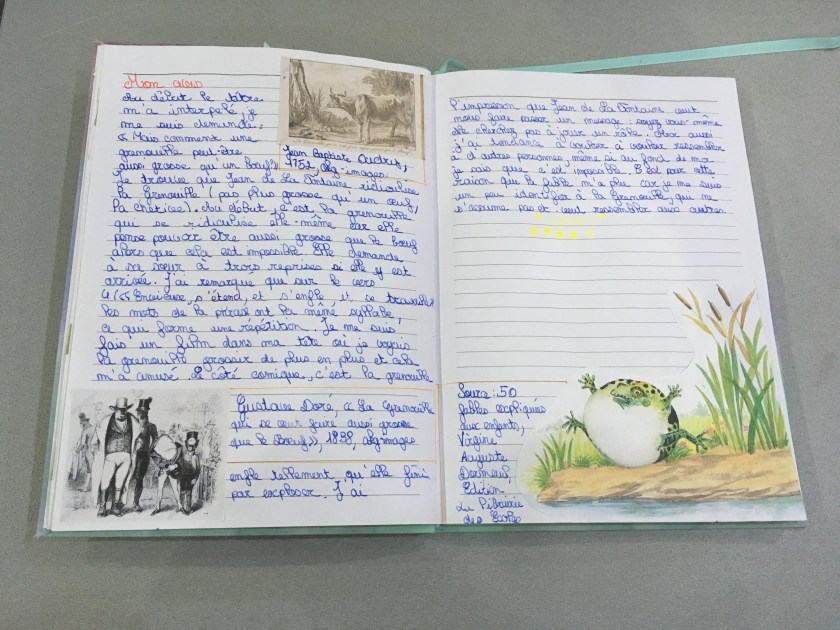 Mon avis
Au début le titre
m'a interpelé, je
me suis demandé :
« Mais comment une
grenouille peut-être
aussi grosse qu'un bœuf? »
Je trouve que Jean de La Fontaine ridiculise
la Grenouille (pas plus grosse qu'un œuf,
la chétive). Au début, c'est la grenouille
qui se ridiculise elle-même car elle
pense pouvoir être aussi grosse que le bœuf
alors que cela est impossible. Elle demande
à sa sœur à trois reprises si elle y est
arrivée. J'ai remarqué que sur le vers
4 (« Envieuse, s'étend, et s'enfle et se travaille »
les mots de la phrase ont la même syllabe,
ce qui forme une répétition. Je me suis
fais un film dans ma tête où je voyais
la grenouille grossir de plus en plus et cela
m'a amusé. Le côté comique, c'est la grenouille
enfle tellement qu'elle fini
par exploser. J'ai
Jean Baptiste Oudry,
1752, akg-images
Gustave Doré, « La Grenouille
qui se veut faire aussi grosse
que le Bœuf », akg-images
l'impression que Jean de La Fontaine veut
nous faire passer un message : soyez vous-même
Ne cherchez pas à jouer un rôle. Moi aussi
j'ai tendance à vouloir à vouloir ressembler
à d'autres personnes, même si au fond de moi
je sais que c'est impossible. C'est pour cette
raison que la fable m'a plu car je me suis
un peu identifier à la Grenouille, qui ne
s'assume pas et veut ressembler aux autres.
Source : 50
fables expliquées
aux enfants,
Virginie
Auguste
Edition
La Librairie
des Ecoles